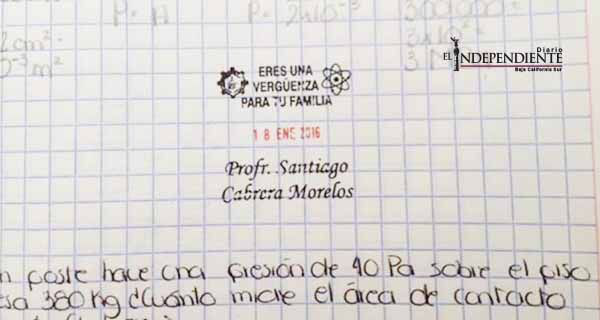 P = A
P =
2x10⁻³
300000
2 cm²
3x10²
m²
ERES UNA
VERGÜENZA
PARA TU FAMILIA
18 ENE 2016
Profr. Santiago
Cabrera Morelos
EL INDEPENDIENTE
Diario
Baja California Sur
n poste hace una presión de 40 Pa sobre el piso
esa 380 kg ¿Cuánto mide el área de contacto